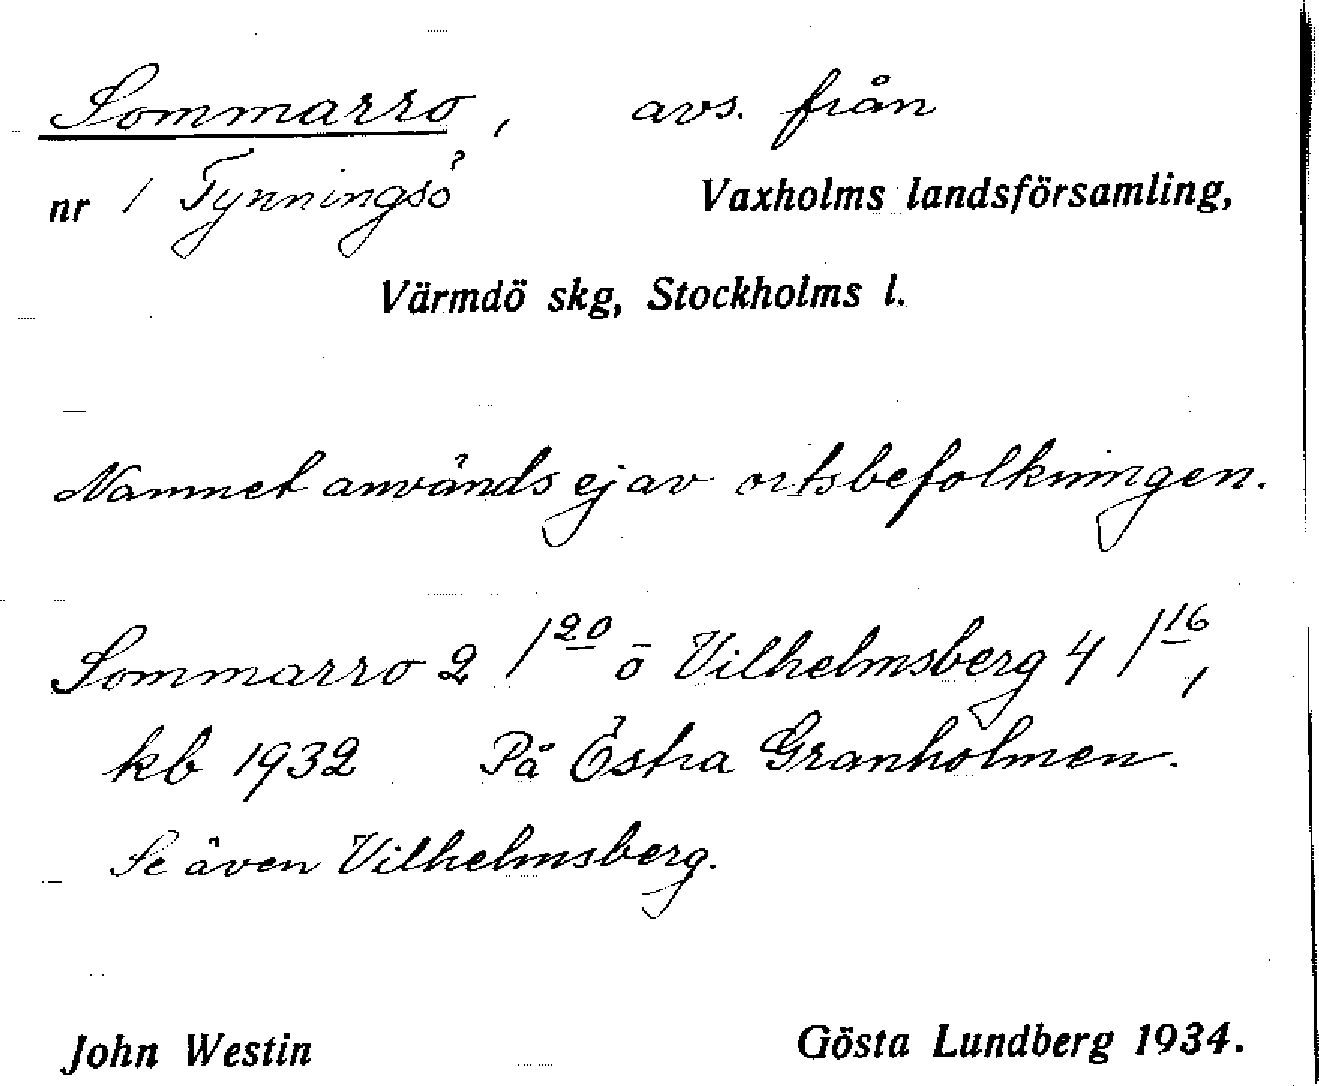 Sommarro, avs. från
nr 1 Tynningsö Vaxholms landsförsamling,
Värmdö skg, Stockholms l.
Namnet används ej av ortsbefolkningen.
Sommarro 2 /20 o Vilhelmsberg 4 /16,
kb 1932 På Östra Granholmen.
Se även Vilhelmsberg.
John Westin Gösta Lundberg 1934.